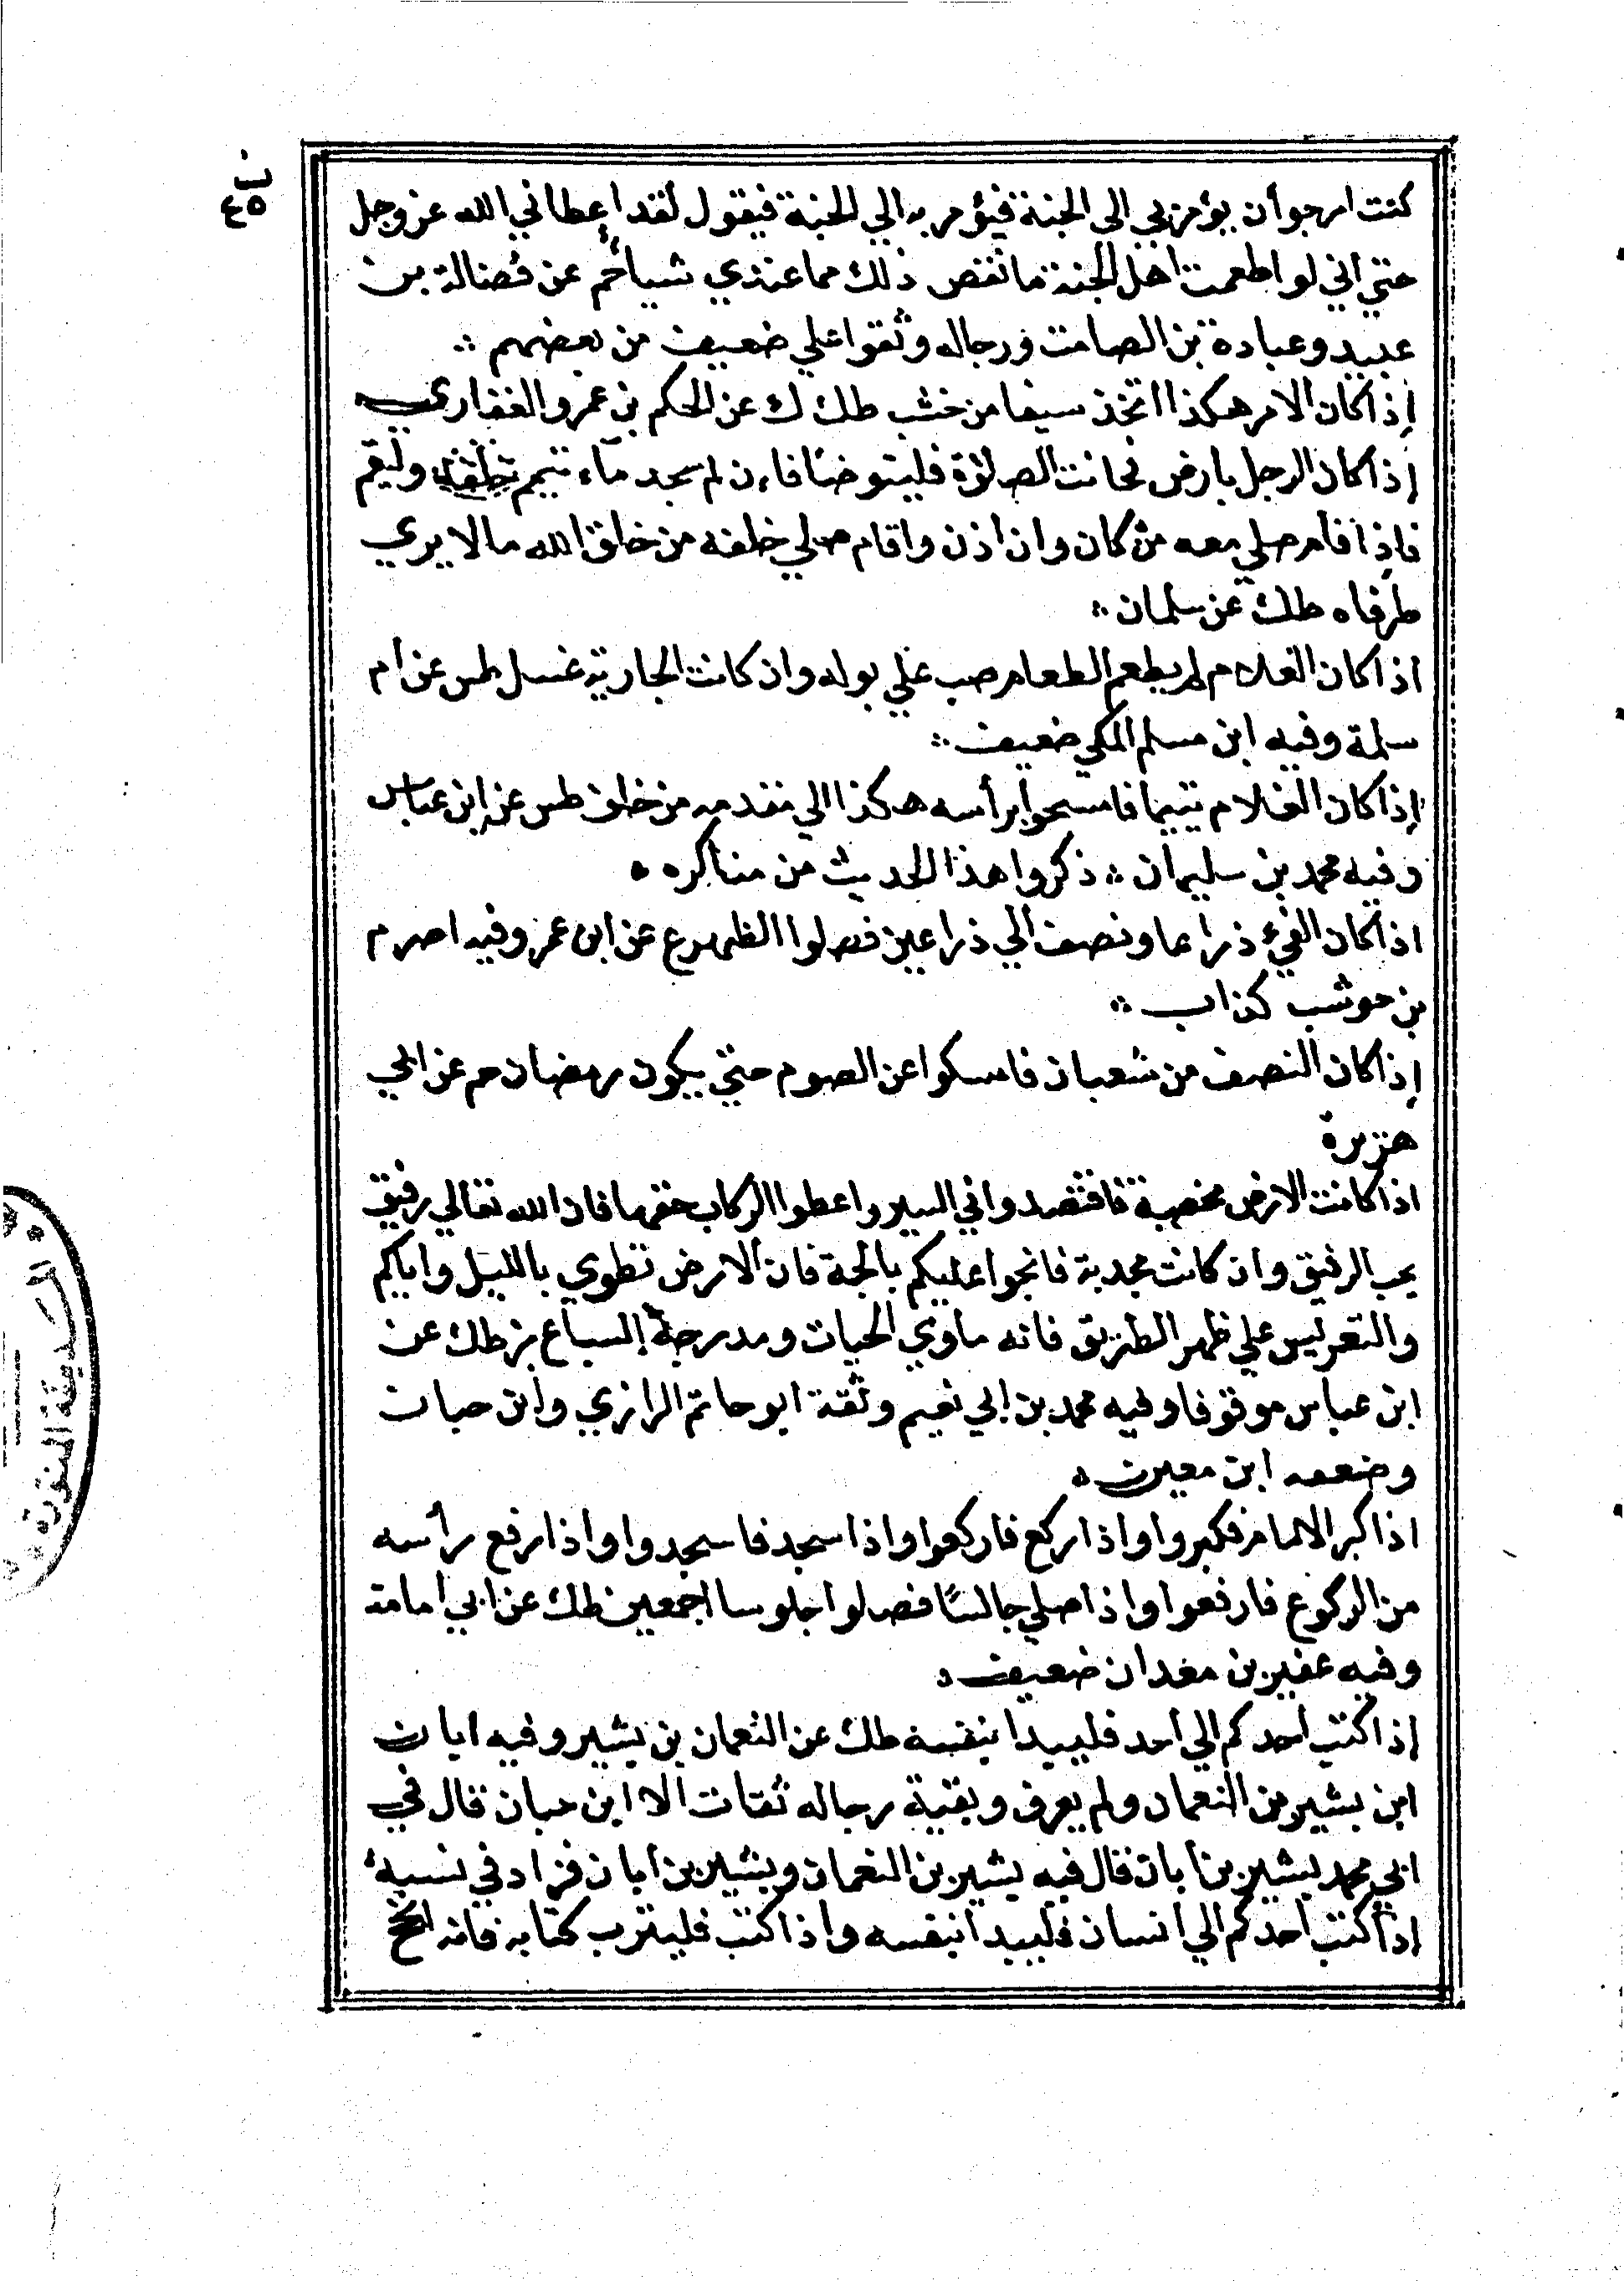 ب
٤٥
كنت ارجو أن يؤمر بي الى الجنة فيؤمر به الي الجنة فيقول لقد اعطاني الله عز وجل
حتي اني لو اطعمت اهل الجنة ما نقص ذلك مما عندي شيا حم عن فضالة بن
عبيد وعبادة بن الصامت ورجاله وثقوا علي ضعيف من بعضهم
إذا كان الامر هكذا اتخذ سيفا من خشب طك ك عن الحكم بن عمرو الغفاري
إذا كان الرجل بارض فحانت الصلوة فليتوضا فان لم يجد ماء تيمم وليقم
فاذا قام صلي معه من كان وان اذن واقام صلي خلفه من خلق الله مالا يري
طرفاه طك عن سلمان
اذا كان الغلام لم يطعم الطعام صب علي بوله وان كانت الجارية غسل طس عن أم
سلمة وفيه ابن مسلم المكي ضعيف
إذا كان الغلام يتيما فامسحوا برأسه هكذا الي مقدمه من خلف طس عن ابن عباس
وفيه محمد بن سليمان ذكروا هذا الحديث من مناكره
اذا كان الفيء ذراعا ونصف الي ذراعين فصلوا الظهر ع عن ابن عمر وفيه اصرم
بن حوشب كذاب
إذا كان النصف من شعبان فامسكوا عن الصوم حتي يكون رمضان حم عن ابي
هريرة
اذا كانت الارض مخصبة فاقتصدوا في السير واعطوا الركاب حقها فان الله تعالي رفيق
يحب الرفيق وان كانت مجدبة فانجوا عليكم بالجة فان الارض تطوي بالليل واياكم
والتعريس علي ظهر الطريق فانه ماوي الحيات ومدرجة السباع بز طك عن
ابن عباس موقوفا وفيه محمد بن ابي نعيم وثقة ابو حاتم الرازي وابن حبان
وضعفه ابن معين
اذا كبر الامام فكبروا واذا ركع فاركعوا واذا سجد فاسجدوا واذا رفع رأسه
من الركوع فارفعوا واذا صلي جالسا فصلوا جلوسا اجمعين طك عن ابي امامة
وفيه عفير بن معدان ضعيف
إذا كتب احدكم الي أحد فليبدا بنفسه طك عن النعمان بن بشير وفيه ابان
ابن بشير من النعمان ولم يعرف وبقية رجاله ثقات الا ابن حبان قال في
ابي محمد بشير بن أبان قال فيه بشير بن النعمان وبشير بن ابان فزاد في نسبه
إذا كتب احدكم الي انسان فليبدا بنفسه واذا كتب فليترب كتابه فانه انجح
المدينة المنورة